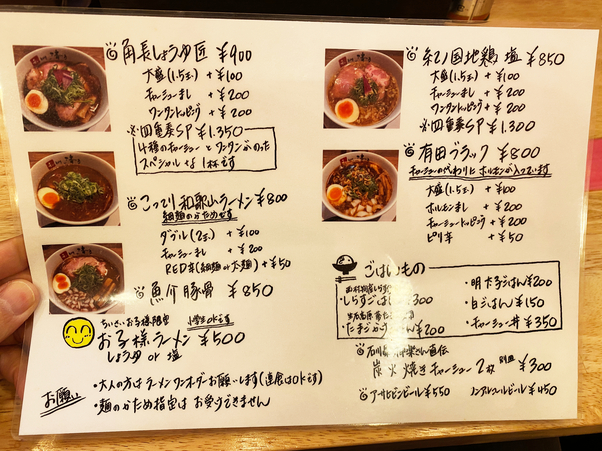 角長しょうゆ匠 ¥900
大盛(1.5玉) +¥100
チャーシューまし +¥200
ワンタントッピング +¥200
※四重奏SP ¥1.350
4種のチャーシューとワンタンがのった
スペシャルな1杯です
こってり和歌山ラーメン ¥800
細麺のかためです
ダブル(2玉) +¥100
チャーシューまし +¥200
RED辛(細麺or太麺) +¥50
魚介豚骨 ¥850
ちいさいお子様限定
小学生OKです
お子様ラーメン ¥500
しょうゆ or 塩
お願い
・大人の方はラーメンワンオーダーお願いします(連食はOKです)
・麺のかため指定はお受けできません
紀ノ国地鶏 塩 ¥850
大盛(1.5玉) +¥100
チャーシューまし +¥200
ワンタントッピング +¥200
※四重奏SP ¥1.300
有田ブラック ¥800
チャーシューの代わりにホルモンが入っています
大盛(1.5玉) +¥100
ホルモンまし +¥200
チャーシュートッピング +¥200
ピリ辛 +¥50
ごはんもの
しらすごはん ¥300
たまごかけごはん ¥200
・明太子ごはん ¥200
・白ごはん ¥150
・チャーシュー丼 ¥350
直伝
炭火焼きチャーシュー 2枚 別皿 ¥300
アサヒビンビール ¥550
ノンアルコールビール ¥450